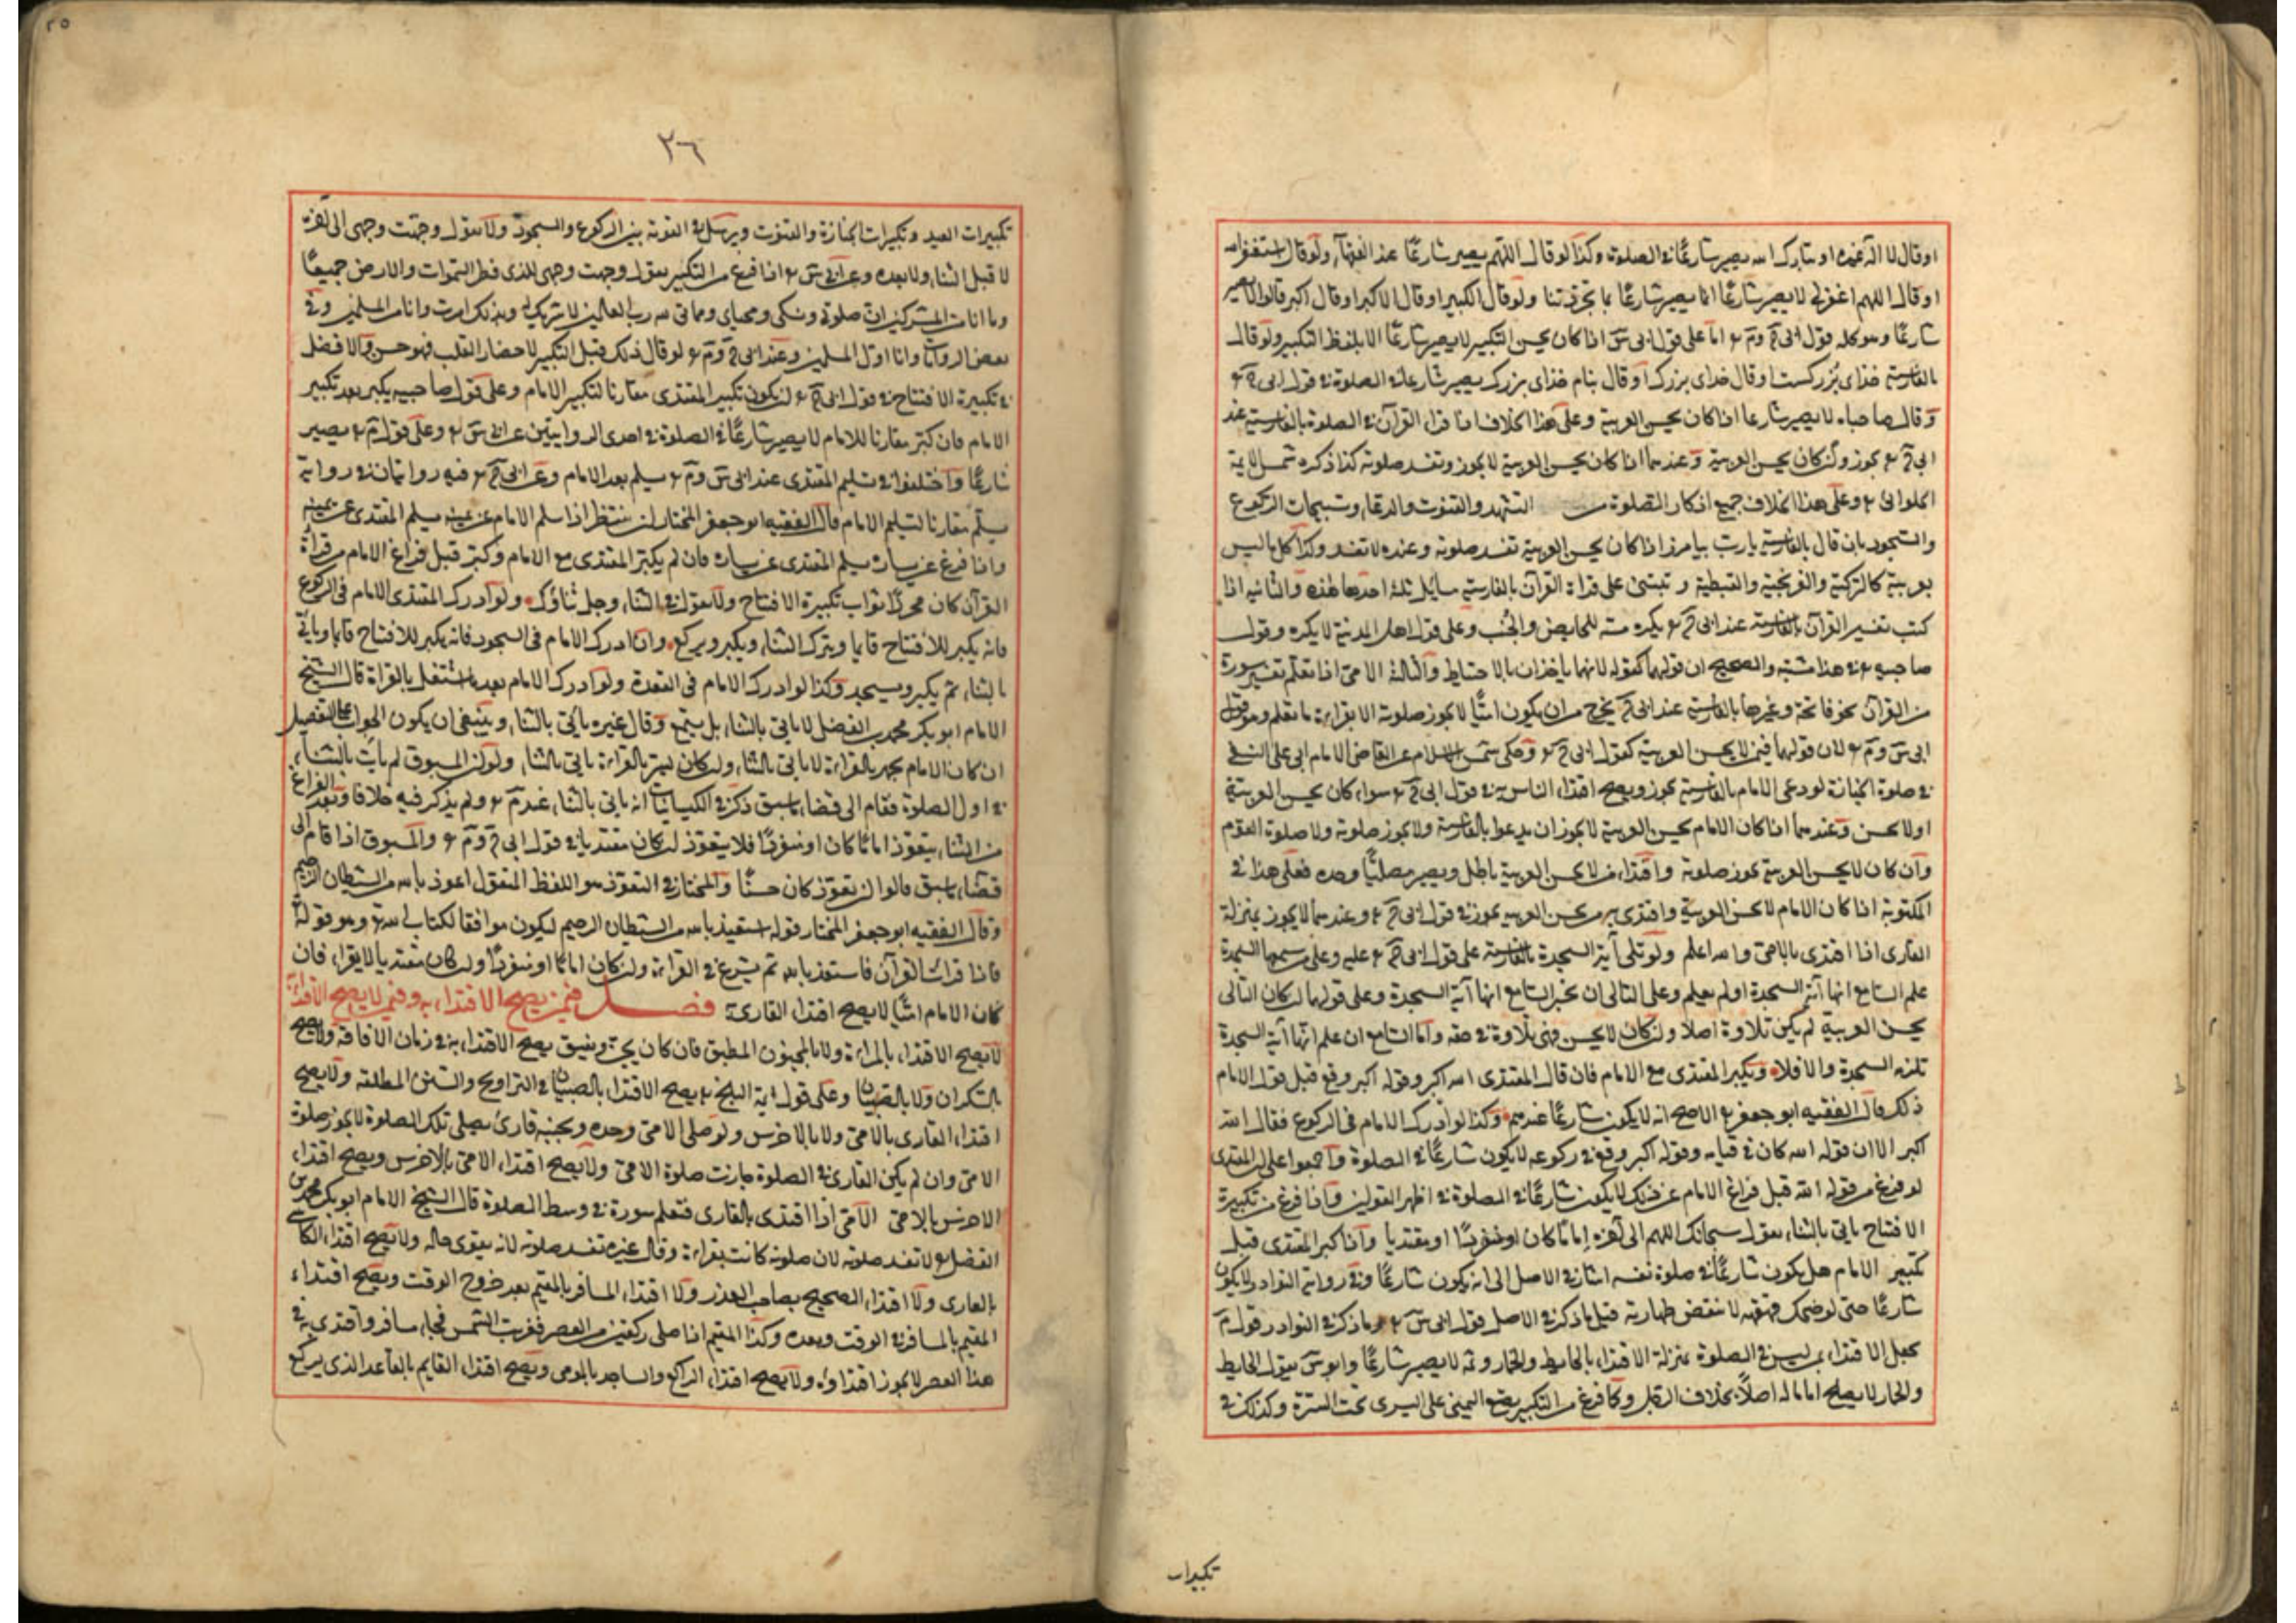 او قال لا اله غيره او تبارك اسمه يصير شارعًا في الصلوة وكذا لو قال اللهم يصير شارعًا عند الفقهآء ولو قال استغفر الله
او قال اللهم اغفر لي لا يصير شارعًا انما يصير شارعًا بما ولو قال الكبير او قال الاكبر او قال اكبر قالوا يصير
شارعًا وهو كله قول ابي ح وم اما على قول ابي س اذا كان يحسن التكبير لا يصير شارعًا الا بلفظ التكبير ولو قال
بالفارسية خداى بزركست او قال خداى بزرك او قال بنام خداى بزرك يصير شارعا في الصلوة في قول ابي ح
وقال صاحباه لا يصير شارعا اذا كان يحسن العربية وعلى هذا الخلاف اذا قرا القرآن في الصلوة بالفارسية عند
ابي ح يجوز وان كان يحسن العربية وعندهما اذا كان يحسن العربية لا يجوز وتفسد صلوته كذا ذكره شمس الايمة
الحلوائي وعلى هذا الخلاف جميع اذكار الصلوة من التشهد والقنوت والدعاء وتسبيحات الركوع
والسجود بان قال بالفارسية يا رب بيامرز اذا كان يحسن العربية تفسد صلوته وعنده لا تفسد وكذا كل ما ليس
بعربية كالتركية والزنجية والنبطية وتبتنى على قراءة القرآن بالفارسية مسائل ثلثة احدها هذه والثانيه اذا
كتب تفسير القرآن بالفارسية عند ابي ح يكره مسه للحايض والجنب وعلى قول اهل المدينة لا يكره وقول
صاحبيه في هذا مشتبه والصحيح ان قولهما كقوله لانهما ياخذان بالاحتياط والثالثة الامي اذا تعلم تفسير سورة
من القرآن نحو فاتحة وغيرها بالفارسية عند ابي ح يخرج من ان يكون اميًّا لا يجوز صلوته الا بقراءة ما تعلم وهو قول
ابي س وم لان قولهما فيمن لا يحسن العربية كقول ابي ح وحكى شمس الاسلام عن القاضي الامام ابي علي النسفي
في صلوة الجنازة لو دعى الامام بالفارسية يجوز ويصح اقتداء الناس به في قول ابي ح سواء كان يحسن العربية
او لا يحسن وعندهما اذا كان الامام يحسن العربية لا يجوز ان يدعوا بالفارسية ولا يجوز صلوته ولا صلوة القوم
وان كان لا يحسن العربية يجوز صلوته واقتداء من لا يحسن العربية باطل ويصير مصليًّا وحده فعلى هذا في
المكتوبة اذا كان الامام لا يحسن العربية واقتدى به من يحسن العربيه يجوز في قول ابي ح وعندهما لا يجوز بمنزلة
القارى اذا اقتدى بالامي والله اعلم ولو تلى آية السجدة بالفارسية على قول ابي ح عليه وعلى من سمعها السجدة
علم السامع انها آية السجدة او لم يعلم وعلى التالى ان يخبر السامع انها آية السجدة وعلى قولهما ان كان التالى
يحسن العربية لم يكن تلاوة اصلا وان كان لا يحسن فهي تلاوة في حقه واما السامع ان علم انها آية السجدة
تلزمه السجدة والا فلا ويكبر المقتدى مع الامام فان قال المقتدى الله اكبر وقوله اكبر وقع قبل قول الامام
ذلك قال الفقيه ابو جعفر الاصح انه لا يكون شارعًا عندهم وكذا لو ادرك الامام في الركوع فقال الله
اكبر الا ان قوله الله كان في قيامه وقوله اكبر وقع في ركوعه لا يكون شارعًا في الصلوة واجمعوا على ان المقتدى
لو فرغ من قوله الله قبل فراغ الامام عن ذلك لا يكون شارعًا في الصلوة في اظهر القولين واذا فرغ من تكبيرة
الافتتاح ياتي بالثناء يقول سبحانك اللهم الى آخره إمامًا كان او منفردًا او مقتديا واذا كبر المقتدى قبل
تكبير الامام هل يكون شارعًا في صلوة نفسه اشار في الاصل الى انه يكون شارعًا وفي رواية النوادر لا يكون
شارعًا حتى لو ضحك قهقهه لا تنتقض طهارته قيل ما ذكر في الاصل قول ابي س وما ذكر في النوادر قول م
يجعل الاقتداء بمن ليس في الصلوة بمنزلة الاقتداء بالحايط والحمار وثمه لا يصير شارعًا وابو س يقول الحايط
والحمار لا يصلح اماما له اصلاً بخلاف الرجل وكما فرغ من التكبير يضع اليمنى على اليسرى تحت السرة وكذلك في
تكبيرات
٢٥
٢٦
تكبيرات العيد وتكبيرات الجنازة والقنوت ويرسل في القومة بين الركوع والسجود ولا يقول وجهت وجهى الى آخره
لا قبل الثناء ولا بعده وعن ابي س اذا فرغ من التكبير يقول وجهت وجهى للذى فطر السموات والارض جميعًا
وما انا من المشركين ان صلوتي ونسكى ومحياى ومماتى لله رب العالمين لا شريك له وبذلك امرت وانا من المسلمين وفي
بعض الروايات وانا اول المسلمين وعند ابي ح وم لو قال ذلك قبل التكبير لاحضار القلب فهو حسن والافضل
في تكبيرة الافتتاح في قول ابي ح ان يكون تكبير المقتدى مقارنا لتكبير الامام وعلى قول صاحبيه يكبر بعد تكبير
الامام فان كبر مقارنا للامام لا يصير شارعًا في الصلوة في احدى الروايتين عن ابي س وعلى قول م يصير
شارعًا واختلفوا في تسليم المقتدى عند ابي س وم يسلم بعد الامام وعن ابي ح فيه روايتان في رواية
يسلم مقارنا لتسليم الامام قال الفقيه ابو جعفر المختار ان ينتظر اذا سلم الامام عن يمينه يسلم المقتدى عن يمينه
واذا فرغ عن يساره يسلم المقتدى عن يساره فان لم يكبر المقتدى مع الامام وكبر قبل فراغ الامام من قراءة
القرآن كان محرزًا ثواب تكبيرة الافتتاح ولا يقول في الثناء وجل ثناؤك ولو ادرك المقتدى الامام في الركوع
فانه يكبر للافتتاح قايما ويترك الثناء ويكبر ويركع وان ادرك الامام في السجود فانه يكبر للافتتاح قايما وياتي
بالثناء ثم يكبر ويسجد وكذا لو ادرك الامام في القعدة ولو ادرك الامام بعد ما اشتغل بالقراة قال الشيخ
الامام ابو بكر محمد بن الفضل لا ياتى بالثناء بل يستمع وقال غيره ياتى بالثناء وينبغى ان يكون الجواب على التفصيل
ان كان الامام يجهر بالقراءة لا ياتى بالثناء وان كان يسر بالقراءة ياتى بالثناء ولو ان المسبوق لم يأت بالثناء
في اول الصلوة فقام الى قضاء ما سبق ذكر في الكيسانيات انه ياتى بالثناء عند م ولم يذكر فيه خلافا وبعد الفراغ
من الثناء يتعوذ امامًا كان او منفردًا فلا يتعوذ ان كان مقتديا في قول ابي ح وم والمسبوق اذا قام الى
قضاء ما سبق قالوا ان تعوذ كان حسنًا والمختار في التعوذ هو اللفظ المنقول اعوذ بالله من الشيطان الرجيم
وقال الفقيه ابو جعفر المختار قوله استعيذ بالله من الشيطان الرحيم ليكون موافقا لكتاب الله وهو قوله
فاذا قرات القرآن فاستعذ بالله ثم يشرع في القراءة وان كان اماما او منفردًا وان كان مقتديا لا يقراء فان
كان الامام اميًّا لا يصح اقتداء القارى به فصل فيمن يصح الاقتداء به وفيمن لا يصح الاقتداء به
لا يصح الاقتداء بالمراءة ولا بالمجنون المطبق فان كان يجن ويفيق يصح الاقتداء به في زمان الافاقه ولا يصح
بالسكران ولا بالصبيان وعلى قول ايمة البلخ يصح الاقتداء بالصبيان في التراويح والسنن المطلقه ولا يصح
اقتداء القارى بالامى ولا بالاخرس ولو صلى الامى وحده وبجنبه قارئ يصلى تلك الصلوة لا يجوز صلوة
الامى وان لم يكن القارى في الصلوة جازت صلوة الامى ولا يصح اقتداء الامى بالاخرس ويصح اقتداء
الاخرس بالامى الامى اذا اقتدى بالقارى فتعلم سورة في وسط الصلوة قال الشيخ الامام ابو بكر محمد بن
الفضل لا تفسد صلوته لان صلوته كانت بقراءة وقال غيره تفسد صلوته لانه يقوى حاله ولا يصح اقتداء الكاسى
بالعارى ولا اقتداء الصحيح بصاحب العذر ولا اقتداء المسافر بالمقيم بعد خروج الوقت ويصح اقتداء
المقيم بالمسافر في الوقت وبعده وكذا المقيم اذا صلى ركعتين من العصر فغربت الشمس فجاء مسافر واقتدى به في
هذا العصر لا يجوز اقتداؤه ولا يصح اقتداء الراكع والساجد بالمومى ويصح اقتداء القايم بالقاعد الذى يركع